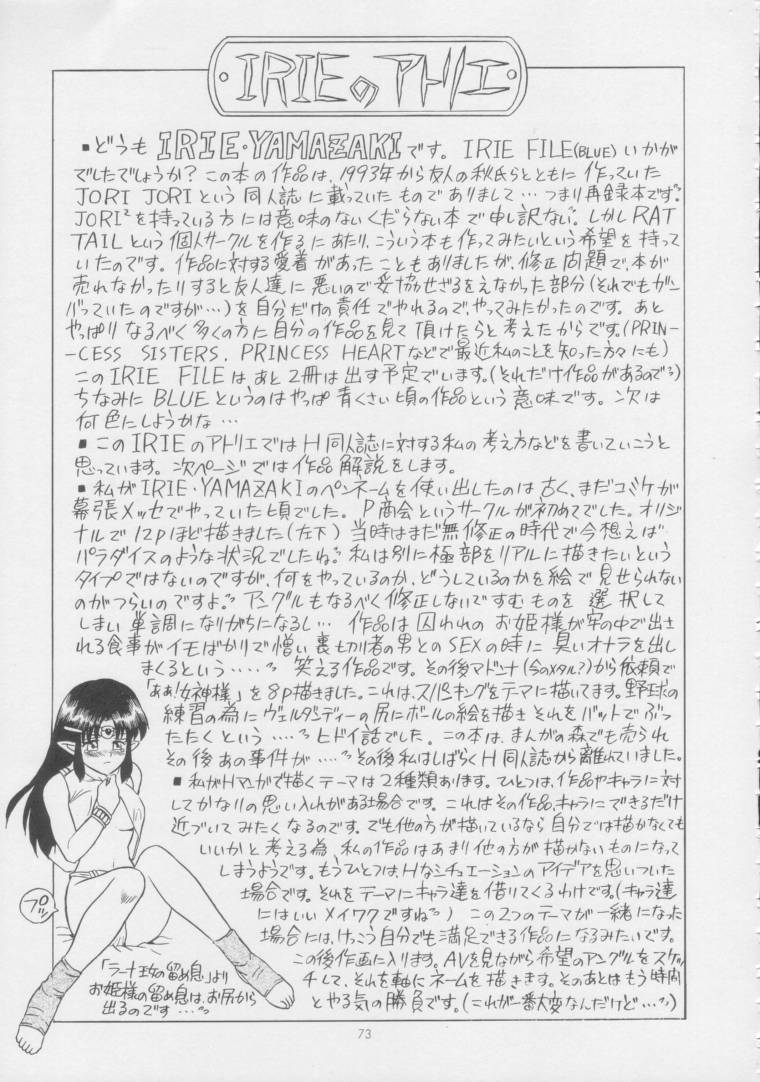 IRIEのアトリエ
▪どうもIRIE・YAMAZAKIです。IRIE FILE(BLUE)いかが
でしたでしょうか？この本の作品は、1993年から友人の秋氏らとともに作っていた
JORI JORIという同人誌に載っていたものでありまして…つまり再録本です。
JORI²を持っている方には意味のないくだらない本で申し訳ない。しかしRAT
TAILという個人サークルを作るにあたり、こういう本も作ってみたいという希望を持って
いたのです。作品に対する愛着があったこともありましたが、修正問題で、本が
売れなかったりすると友人達に悪いので妥協せざるをえなかった部分(それでもガン
バっていたのですが…)を自分だけの責任でやれるので、やってみたかったのです。あと
やっぱりなるべく多くの方に自分の作品を見て頂けたらと考えたからです。(PRIN-
-CESS SISTERS, PRINCESS HEARTなどで最近私のことを知った方々にも)
このIRIE FILEはあと2冊は出す予定でいます。(それだけ作品があるので)
ちなみにBLUEというのはやっぱ青くさい頃の作品という意味です。次は
何色にしようかな…
▪このIRIEのアトリエではH同人誌に対する私の考え方などを書いていこうと
思っています。次ページでは作品解説をします。
▪私がIRIE・YAMAZAKIのペンネームを使い出したのは古く、まだコミケが
幕張メッセでやっていた頃でした。P商会というサークルが初めてでした。オリジ
ナルで12pほど描きました(左下)当時はまだ無修正の時代で今想えば
パラダイスのような状況でしたね。私は別に極部をリアルに描きたいという
タイプではないのですが、何をやっているのか、どうしているのかを絵で見せられない
のがつらいのですよ。アングルもなるべく修正しないですむものを選択して
しまい単調になりがちになるし…作品は囚われのお姫様が牢の中で出さ
れる食事がイモばかりで憎い裏切り者の男とのSEXの時に臭いオナラを出し
まくるという……笑える作品です。その後マドンナ(今のメタル？)から依頼で
「ああ！女神様」を8p描きました。これは、スパキングをテーマに描いてます。野球の
練習の為にヴェルダンディーの尻にボールの絵を描きそれをバットでぶっ
たたくという……ヒドイ話でした。この本は、まんがの森でも売られ
その後あの事件が……その後私はしばらくH同人誌から離れていました。
▪私がHマンガで描くテーマは2種類あります。ひとつは、作品やキャラに対
してかなりの思い入れがある場合です。これはその作品、キャラにできるだけ
近づいてみたくなるのです。でも他の方が描いているなら自分では描かなくても
いいかと考える為、私の作品はあまり他の方が描かないものになって
しまうようです。もうひとつはHなシチュエーションのアイデアを思いついた
場合です。それをテーマにキャラ達を借りてくるわけです。(キャラ達
にはいいメイワクですね)この2つのテーマが一緒になった
場合には、けっこう自分でも満足できる作品になるみたいです。
この後作画に入ります。AVを見ながら希望のアングルをスケッ
チして、それを軸にネームを描きます。そのあとはもう時間
とやる気の勝負です。(これが一番大変なんだけど…)
プッ
「ラーナ王女の留め息」より
お姫様の留め息は、お尻から
出るのです…
73